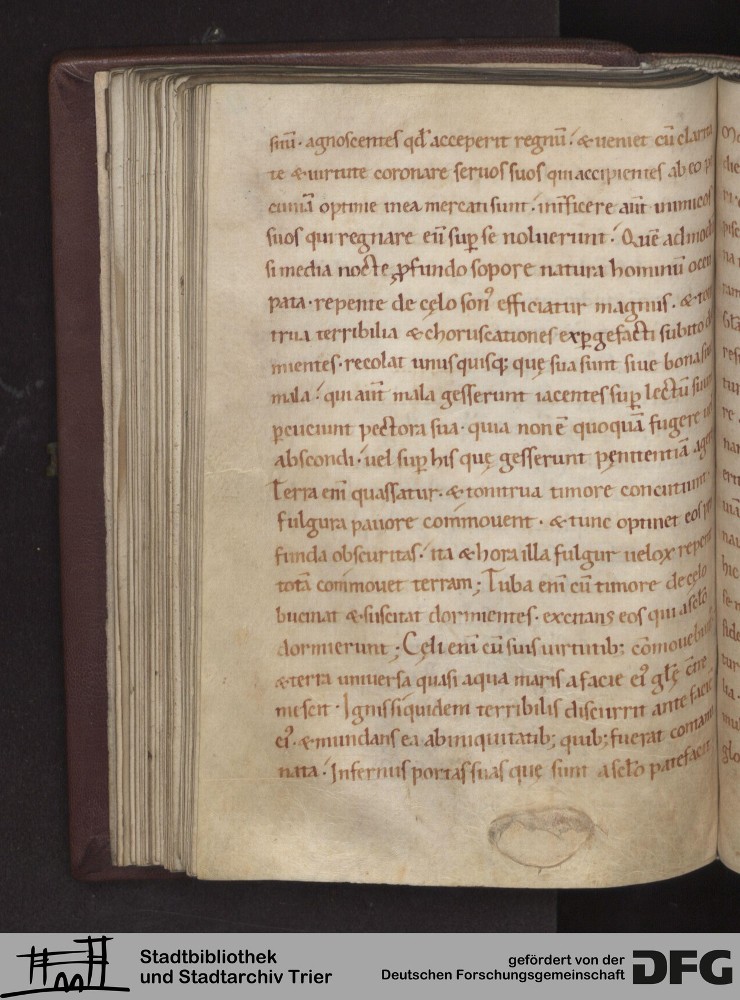 suũ· agnoscentes qđ acceperit regnũ· & ueniet cũ clarita
te & uirtute coronare seruos suos qui accipientes ab eo pe
cuniã optime mea mercati sunt· interficere aũt inimicos
suos qui regnare eũ sup̱ se noluerunt· Quẽ admodũ
si media nocte ꝓfundo sopore natura hominũ occu
pata· repente de cęlo sonꝰ efficiatur magnus· & ton
trua terribilia & choruscationes exp̱gefacti subito
mientes· recolat unusquisq; quę sua sunt siue bona siue
mala· qui aũt mala gesserunt iacentes sup̱ lectũ suum
p̱cuciunt pectora sua· quia non ẽ quoquã fugere uel
abscondi· uel sup̱ his quę gesserunt pęnitentiã agere
Terra eni᷑ quassatur· & tonitrua timore concutiunt·
fulgura pauore com̃ouent· & tunc optinet eos pro
funda obscuritas· ita & hora illa fulgur uelox repente
totã com̃ouet terram; Tuba eni᷑ cũ timore de cęlo
bucinat & suscitat dormientes· excitans eos qui a sclo
dormierunt; Cęli eni᷑ cũ suis uirtutib; cõmouebunt
& terra uniuersa quasi aqua maris a facie eiꝰ glę ctre
miscit· Ignis siquidem terribilis discurrit ante facie
eiꝰ· & mundans ea ab iniquitatib; quib; fuerat contami
nata· Infernus portas suas quę sunt a sclo patefacit
Stadtbibliothek
und Stadtarchiv Trier
gefördert von der
Deutschen Forschungsgemeinschaft
DFG